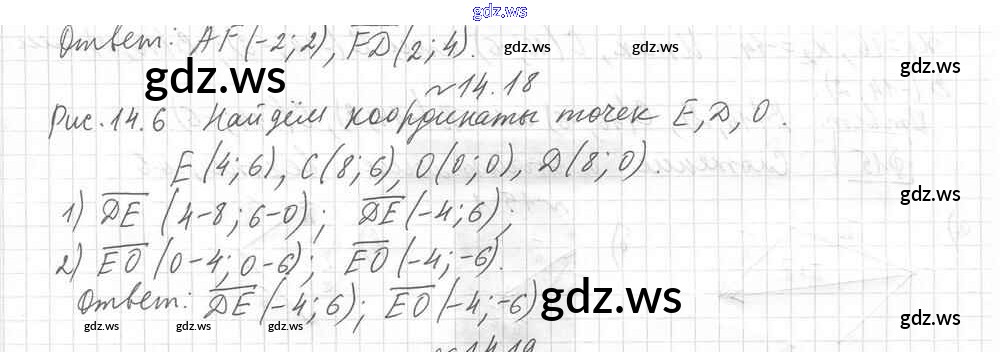 gdz.ws
Ответ: AF(-2;2), FD(2;4).
gdz.ws
gdz.ws
gdz.ws
gdz.ws
№14.18
Рис.14.6 Найдём координаты точек E, D, O.
E(4;6), C(8;6), O(0;0), D(8;0).
1) DE (4-8;6-0); DE(-4;6);
gdz.ws
2) EO (0-4;0-6); EO(-4;-6).
Ответ: DE(-4;6); EO(-4;-6)
gdz.ws
gdz.ws
gdz.ws gdz.ws gdz.ws
№14.19